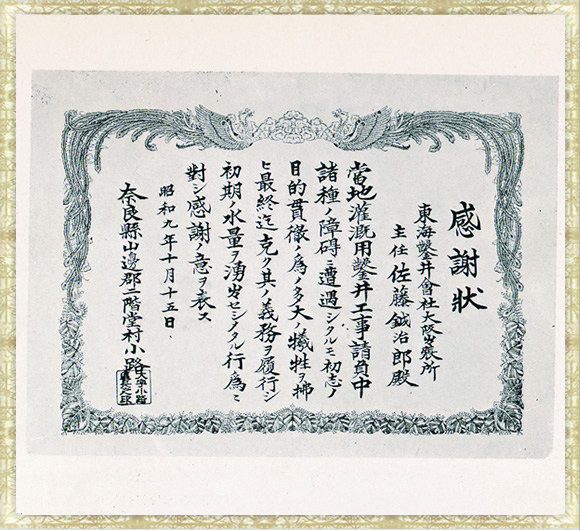 感謝狀
東海鑿井會社大阪出張所
主任 佐藤鉞治郎殿
當地灌漑用鑿井工事請負中
諸種ノ障碍ニ遭遇シタルモ初志ノ
目的貫徹ノ爲メ多大ノ犠牲ヲ拂
ヒ最終迄克ク其ノ義務ヲ履行シ
初期ノ水量ヲ湧出セシメタル行爲ニ
對シ感謝ノ意ヲ表ス
昭和九年十月十五日
奈良縣山邊郡二階堂村小路
大字小路